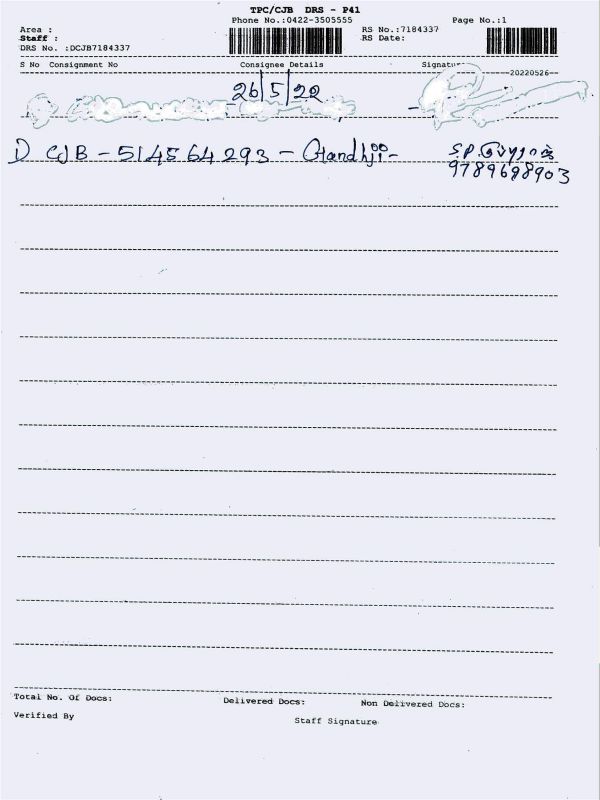 TPC/CJB DRS - P41
Phone No.:0422-3505555
Page No.:1
Area :
RS No.:7184337
Staff :
RS Date:
DRS No. :DCJB7184337
S No Consignment No Consignee Details Signatur
20220526
26/5/22
1) CJB - 514564293 - Gandhiji - S.P.
9789698903
Total No. Of Docs: Delivered Docs: Non Delivered Docs:
Verified By Staff Signature